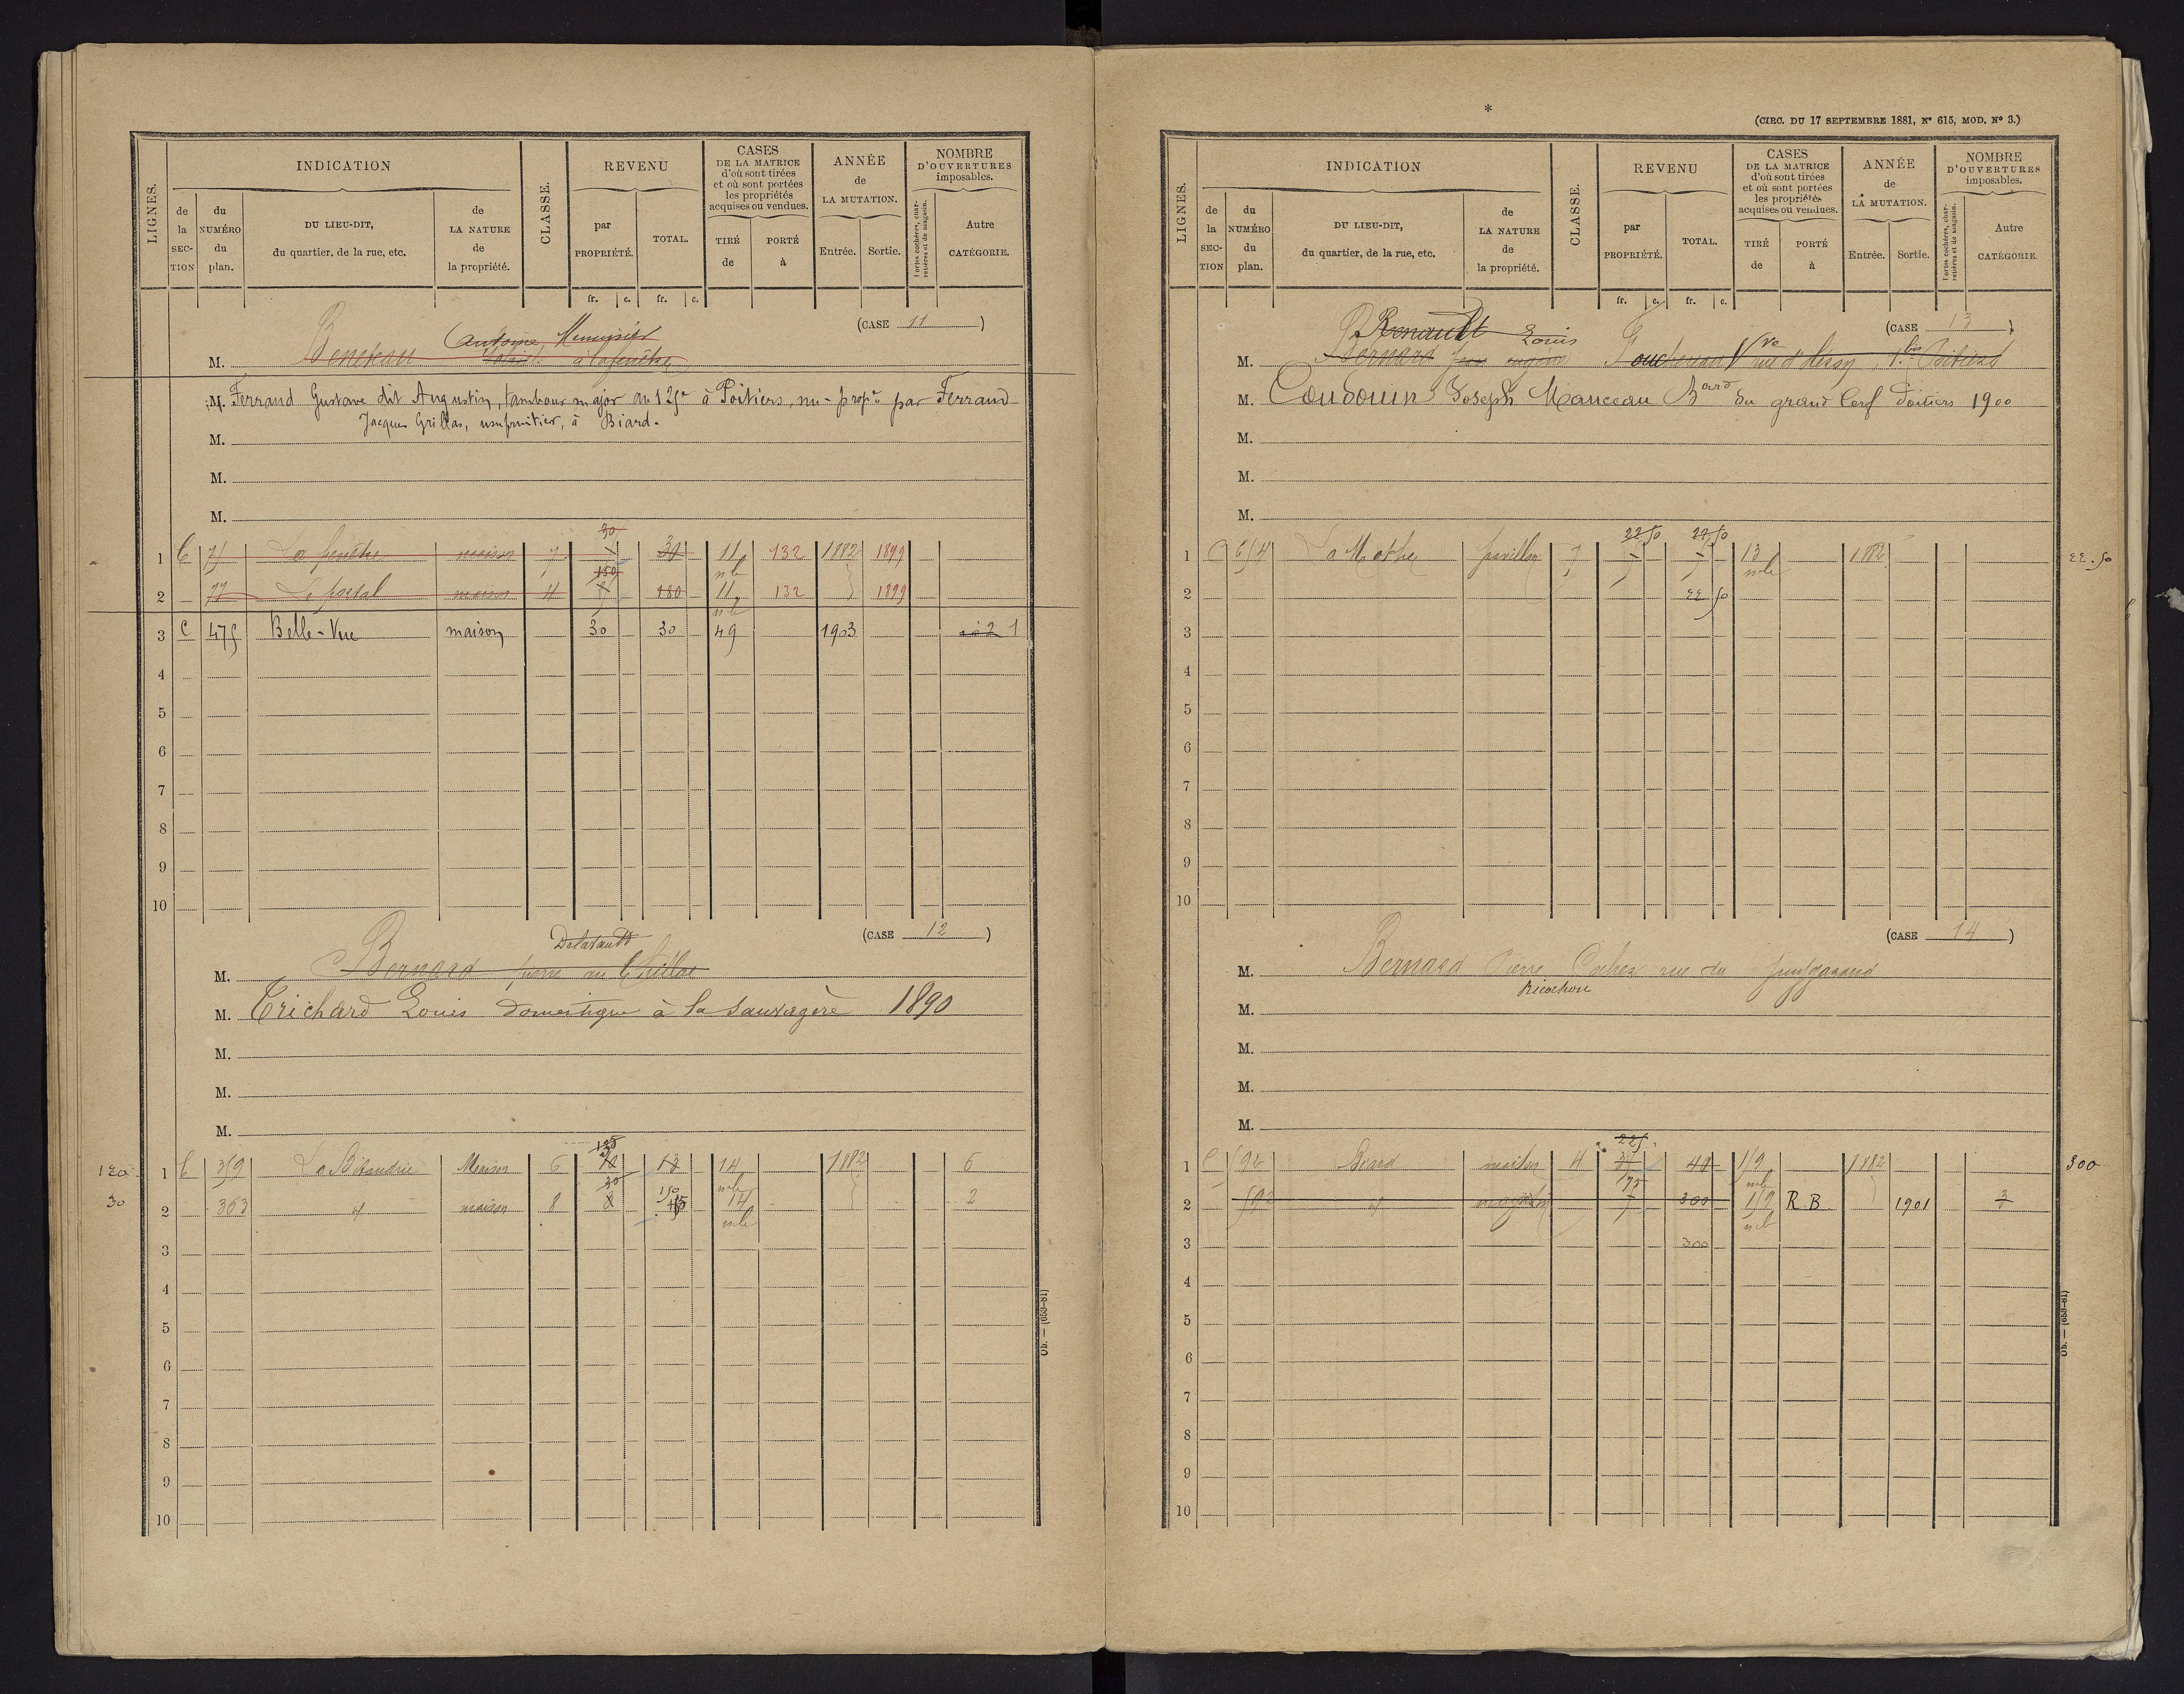 LIGNES.
INDICATION
de la SECTION
du NUMÉRO du plan.
DU LIEU-DIT, du quartier, de la rue, etc.
de LA NATURE de la propriété.
CLASSE.
REVENU
par PROPRIÉTÉ.
TOTAL.
fr. c. fr. c.
CASES DE LA MATRICE d'où sont tirées et où sont portées les propriétés acquises ou vendues.
TIRÉ de
PORTÉ à
ANNÉE de LA MUTATION.
Entrée. Sortie.
NOMBRE D'OUVERTURES imposables.
Portes cochères, charretières et de magasin.
Autre CATÉGORIE.
(CASE 11)
Antoine Menuisier
M. Beneteau à la fenêtre
M. Ferrand Gustave dit Augustin, tambour major au 125e à Poitiers, nu-propre par Ferrand
Jacques Grillas, usufruitier, à Biard.
M.
M.
M.
30
1 C 71 La fenêtre maison 7 30 11 132 1882 1899
nle
150
2 77 Le portal maison 4 180 11 132 1899
nle
3 C 475 Belle-Vue maison 30 30 49 1903 1
4
5
6
7
8
9
10
(CASE 12)
Delavault
M. Bernard pierre au
M. Trichard Louis domestique à la Sauvagère 1890
M.
M.
M.
120 1 C 359 La Ribaudrie Maison 6 14 1882 6
nle
30
30 2 363 id maison 8 150 14 2
nle
3
4
5
6
7
8
9
10
Ob. — (653-81)
*
(CIRC. DU 17 SEPTEMBRE 1881, N° 615, MOD. N° 3.)
LIGNES.
INDICATION
de la SECTION
du NUMÉRO du plan.
DU LIEU-DIT, du quartier, de la rue, etc.
de LA NATURE de la propriété.
CLASSE.
REVENU
par PROPRIÉTÉ.
TOTAL.
fr. c. fr. c.
CASES DE LA MATRICE d'où sont tirées et où sont portées les propriétés acquises ou vendues.
TIRÉ de
PORTÉ à
ANNÉE de LA MUTATION.
Entrée. Sortie.
NOMBRE D'OUVERTURES imposables.
Portes cochères, charretières et de magasin.
Autre CATÉGORIE.
(CASE 13)
Renault Louis
M. Bernard Jean eugène Vve Poitiers
M. Coudouin Joseph Manceau Bard du grand Cerf Poitiers 1900
M.
M.
M.
22 50 22 50
1 C 614 La Mothe pavillon 7 13 1882 22.50
nle
2 22 50
3
4
5
6
7
8
9
10
(CASE 14)
M. Bernard Pierre Cocher rue du
Ricochon
M.
M.
M.
M.
225
1 C 592 Biard maison 4 40 1882 300
nle
175
2 592 id 300 R.B. 1901
nle
3 300
4
5
6
7
8
9
10
Ob. — (653-81)